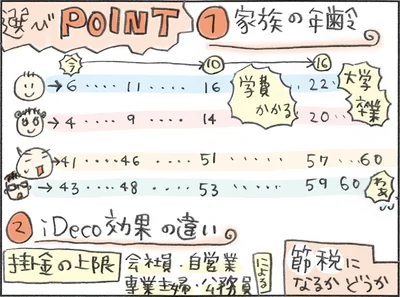 選び POINT ① 家族の年齢
今 ⑩ ⑯
→6 ‥‥ 11 ‥‥ 16 22 ‥‥
学費かかる
大学卒業
→4 ‥‥ 9 ‥‥ 14 20 ‥‥
→41 ‥‥ 46 ‥‥ 51 ‥‥‥ 57 ‥‥ 60
→43 ‥‥ 48 ‥‥ 53 ‥‥‥ 59 60
わぁ
② iDeco効果の違い
掛金の上限 会社員・自営業
専業主婦・公務員 による
節税に
なるかどうか